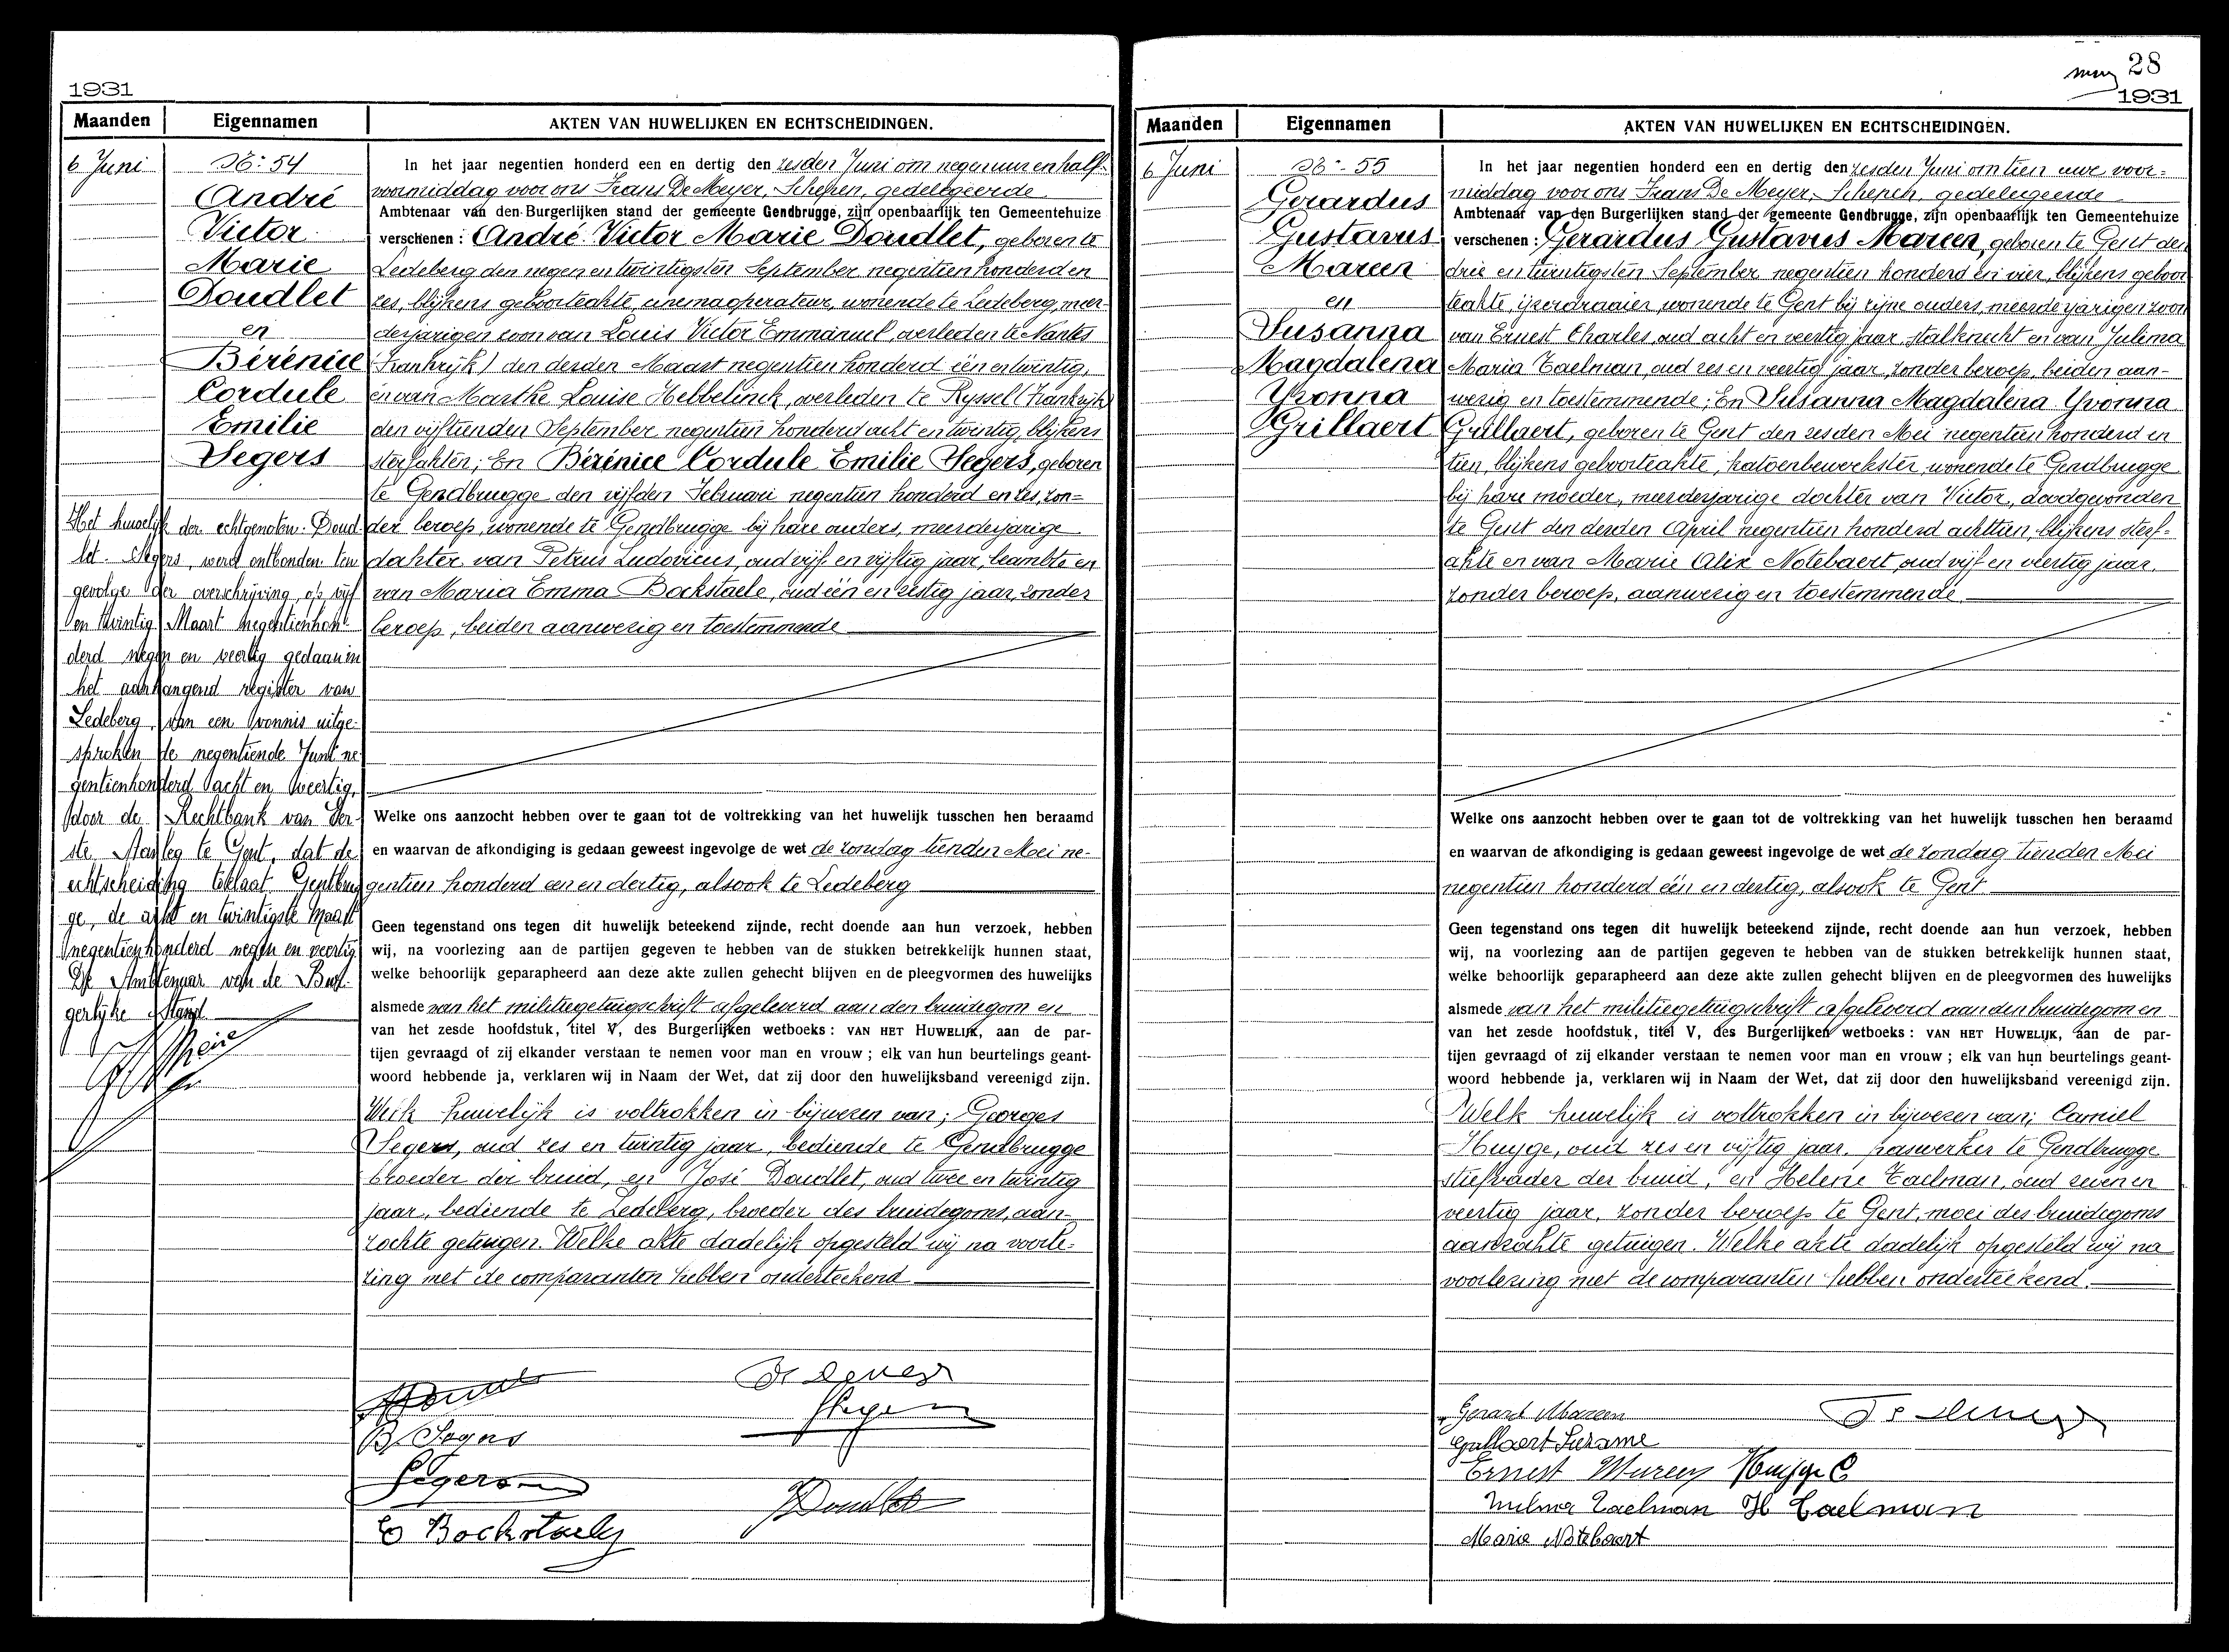 1931
Maanden Eigennamen AKTEN VAN HUWELIJKEN EN ECHTSCHEIDINGEN.
6 Juni
54
André
Victor
Marie
Doudlet
en
Bérénice
Cordule
Emilie
Segers
Het huwelijk der echtgenoten: Doud-
let - Segers, werd ontbonden ten
gevolge der overschrijving, op vijf
en twintig Maart negentienhon-
derd negen en veertig gedaan in
het aanhangend register van
Ledeberg, van een vonnis uitge-
sproken de negentiende Juni ne-
gentienhonderd acht en veertig,
door de Rechtbank van Eer-
ste Aanleg te Gent, dat de
echtscheiding toelaat. Gentbrug-
ge, de acht en twintigste Maart
negentienhonderd negen en veertig.
De Ambtenaar van de Bur-
gerlijke Stand
In het jaar negentien honderd een en dertig den zesden Juni om negen uur en half
voormiddag voor ons Frans De Meyer, Schepen, gedelegeerde
Ambtenaar van den Burgerlijken stand der gemeente Gendbrugge, zijn openbaarlijk ten Gemeentehuize
verschenen: André Victor Marie Doudlet, geboren te
Ledeberg den negen en twintigsten September negentien honderd en
zes, blijkens geboorteakte, cinemaoperateur, wonende te Ledeberg, meer-
derjarigen zoon van Louis Victor Emmanuel, overleden te Nantes
(Frankrijk) den derden Maart negentien honderd één en twintig,
en van Marthe Louise Hebbelinck, overleden te Ryssel (Frankrijk)
den vijftienden September negentien honderd acht en twintig, blijkens
sterfakten; En Bérénice Cordule Emilie Segers, geboren
te Gendbrugge den vijfden Februari negentien honderd en zes, zon-
der beroep, wonende te Gendbrugge bij hare ouders, meerderjarige
dochter van Petrus Ludovicus, oud vijf en vijftig jaar, beambte en
van Maria Emma Bockstaele, oud één en zestig jaar, zonder
beroep, beiden aanwezig en toestemmende
Welke ons aanzocht hebben over te gaan tot de voltrekking van het huwelijk tusschen hen beraamd
en waarvan de afkondiging is gedaan geweest ingevolge de wet de zondag tienden Mei ne-
gentien honderd een en dertig, alsook te Ledeberg
Geen tegenstand ons tegen dit huwelijk beteekend zijnde, recht doende aan hun verzoek, hebben
wij, na voorlezing aan de partijen gegeven te hebben van de stukken betrekkelijk hunnen staat,
welke behoorlijk geparapheerd aan deze akte zullen gehecht blijven en de pleegvormen des huwelijks
alsmede van het militiegetuigschrift afgeleverd aan den bruidegom en
van het zesde hoofdstuk, titel V, des Burgerlijken wetboeks: VAN HET HUWELIJK, aan de par-
tijen gevraagd of zij elkander verstaan te nemen voor man en vrouw; elk van hun beurtelings geant-
woord hebbende ja, verklaren wij in Naam der Wet, dat zij door den huwelijksband vereenigd zijn.
Welk huwelijk is voltrokken in bijwezen van; Georges
Segers, oud zes en twintig jaar, bediende te Gendbrugge
broeder der bruid, en José Doudlet, oud twee en twintig
jaar, bediende te Ledeberg, broeder des bruidegoms, aan-
zochte getuigen. Welke akte dadelijk opgesteld wij na voorle-
zing met de comparanten hebben onderteekend
B. Segers
Segers
E Bockstaele
Doudlet
28
1931
Maanden Eigennamen AKTEN VAN HUWELIJKEN EN ECHTSCHEIDINGEN.
6 Juni
55
Gerardus
Gustavus
Mareen
en
Susanna
Magdalena
Yvonna
Grillaert
In het jaar negentien honderd een en dertig den zesden Juni om tien ure voor-
middag voor ons Frans De Meyer, Schepen, gedelegeerde
Ambtenaar van den Burgerlijken stand der gemeente Gendbrugge, zijn openbaarlijk ten Gemeentehuize
verschenen: Gerardus Gustavus Mareen, geboren te Gent den
drie en twintigsten September negentien honderd en vier, blijkens geboor-
teakte, ijzerdraaier, wonende te Gent bij zijne ouders, meerderjarigen zoon
van Ernest Charles oud acht en veertig jaar, stalknecht en van Julima
Maria Taelman, oud zes en veertig jaar, zonder beroep, beiden aan-
wezig en toestemmende; En Susanna Magdalena Yvonna
Grillaert, geboren te Gent den zesden Mei negentien honderd en
tien, blijkens geboorteakte, katoenbewerkster, wonende te Gendbrugge
bij hare moeder, meerderjarige dochter van Victor, doodgevonden
te Gent den derden April negentien honderd achttien, blijkens sterf-
akte en van Marie Alix Notebaert oud vijf en veertig jaar,
zonder beroep, aanwezig en toestemmende
Welke ons aanzocht hebben over te gaan tot de voltrekking van het huwelijk tusschen hen beraamd
en waarvan de afkondiging is gedaan geweest ingevolge de wet de zondag tienden Mei
negentien honderd één en dertig, alsook te Gent
Geen tegenstand ons tegen dit huwelijk beteekend zijnde, recht doende aan hun verzoek, hebben
wij, na voorlezing aan de partijen gegeven te hebben van de stukken betrekkelijk hunnen staat,
welke behoorlijk geparapheerd aan deze akte zullen gehecht blijven en de pleegvormen des huwelijks
alsmede van het militiegetuigschrift afgeleverd aan den bruidegom en
van het zesde hoofdstuk, titel V, des Burgerlijken wetboeks: VAN HET HUWELIJK, aan de par-
tijen gevraagd of zij elkander verstaan te nemen voor man en vrouw; elk van hun beurtelings geant-
woord hebbende ja, verklaren wij in Naam der Wet, dat zij door den huwelijksband vereenigd zijn.
Welk huwelijk is voltrokken in bijwezen van; Camiel
Huyge, oud zes en vijftig jaar, paswerker te Gendbrugge
stiefvader der bruid, en Helene Taelman, oud zeven en
veertig jaar, zonder beroep te Gent, moei des bruidegoms
aanzochte getuigen. Welke akte dadelijk opgesteld wij na
voorlezing met de comparanten hebben onderteekend.
Gerard Mareen
Grillaert Suzanne
Ernest Mareen Huyge C
Taelman H Taelman
Marie Notebaert